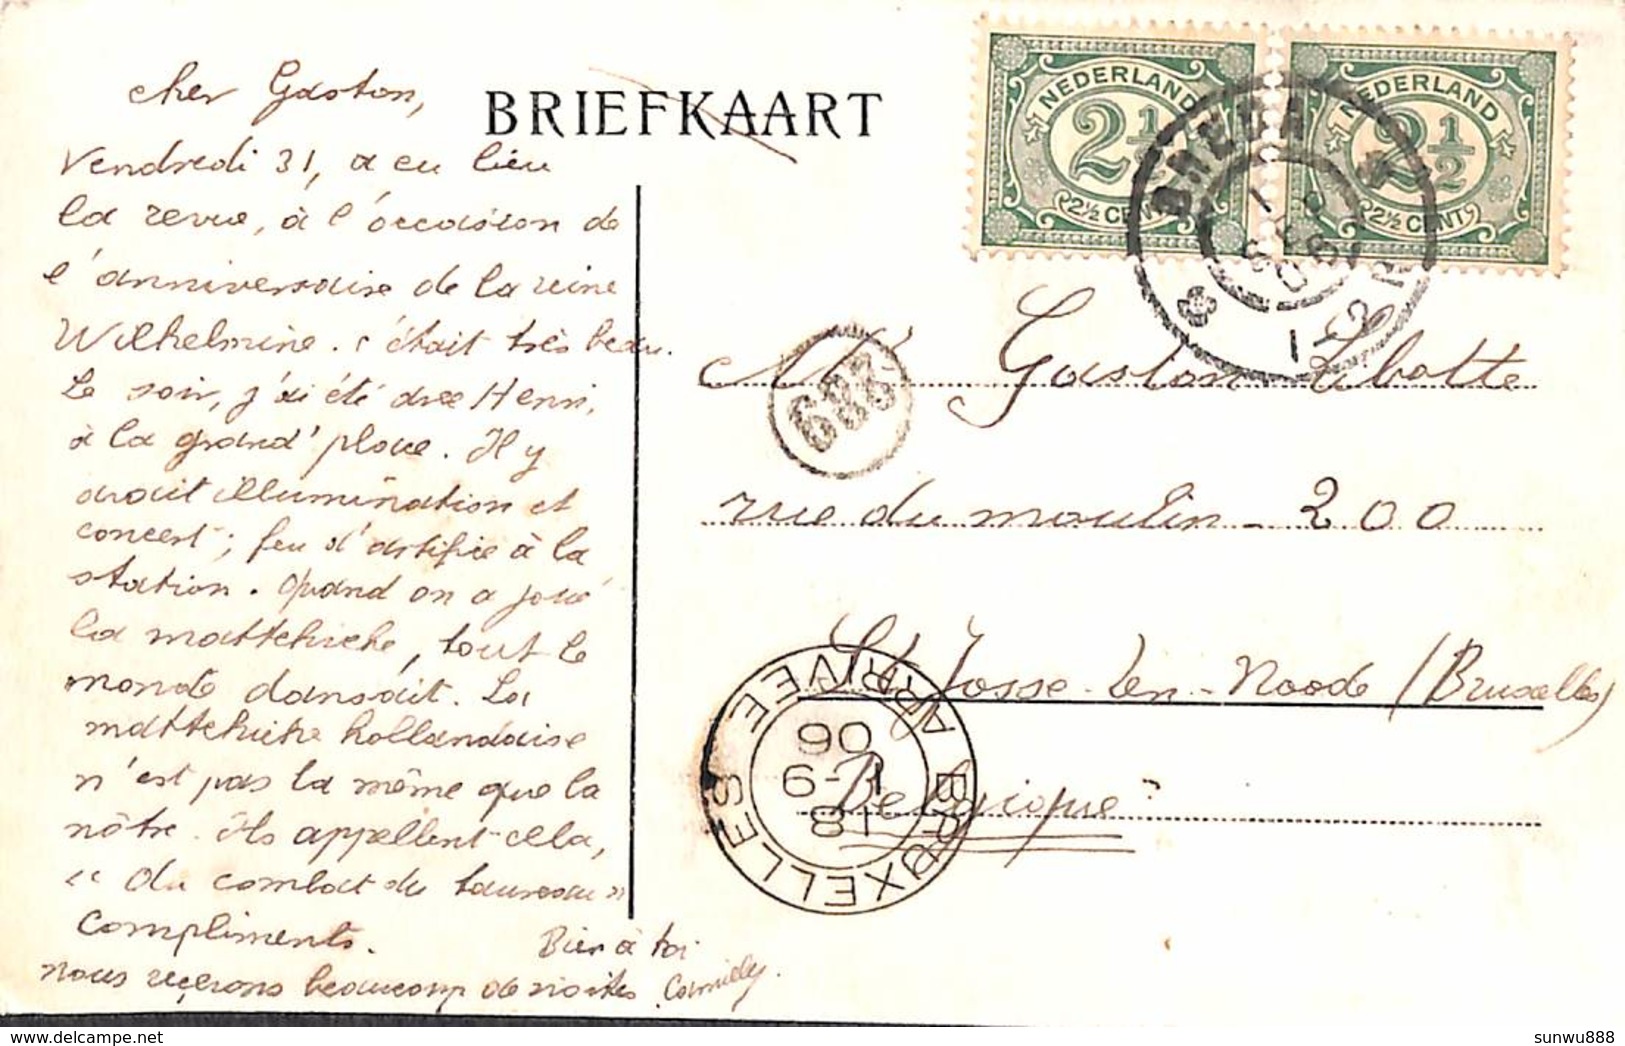 cher Gaston,
Vendredi 31, a eu lieu
la revue, à l'occasion de
l'anniversaire de la reine
Wilhelmine. c'était très beau.
Le soir, j'ai été avec Henri,
à la grand'place. Il y
avait illumination et
concert; feu d'artifice à la
station. Quand on a joué
la mattchiche, tout le
monde dansait. La
mattchiche hollandaise
n'est pas la même que la
nôtre. Ils appellent cela,
"du combat du taureau"
Compliments.
Bien à toi
nous reçevons beaucoup de visites Camille.
BRIEFKAART
NEDERLAND
2½
2½ CENT
NEDERLAND
2½
2½ CENT
BREDA
1-2 N
Mr Gaston Libotte
rue du moulin - 200
St Josse-ten-Noode (Bruxelles)
Belgique
BRUXELLES ARRIVEE
18
1-9
06
sunwu888